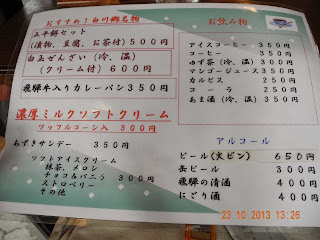 おすすめ！白川郷名物
五平餅セット
(漬物、豆腐、お茶付) 500円
白玉ぜんざい (冷、温)
(クリーム付) 600円
飛騨牛入りカレーパン 350円
濃厚ミルクソフトクリーム
ワッフルコーン入 300円
あずきサンデー 350円
ソフトアイスクリーム
抹茶、メロン
チョコ&バニラ 300円
ストロベリー
その他
お飲み物
アイスコーヒー 350円
コーヒー 350円
ゆず茶 (冷、温) 300円
マンゴージュース 350円
カルピス 250円
コーラ 250円
あま酒 (冷、温) 350円
アルコール
ビール (大ビン) 650円
缶ビール 300円
飛騨の清酒 400円
にごり酒 400円
23.10.2013 13:26